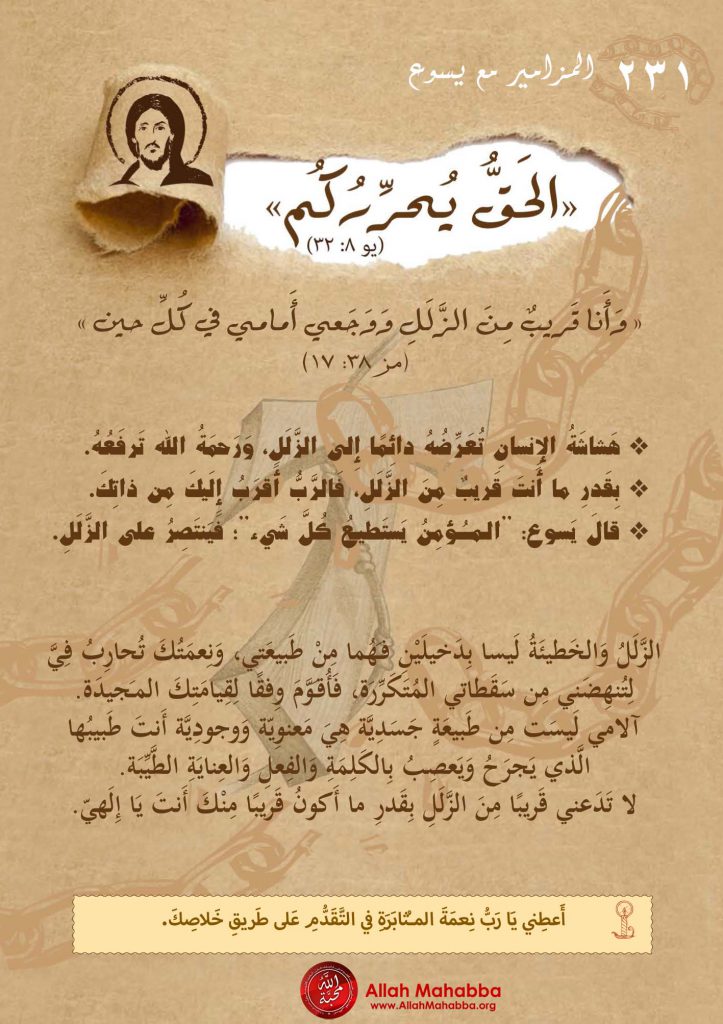 ٢٣١ المزامير مع يسوع
«الحَقُّ يُحرِّرُكُم»
(يو ٨: ٣٢)
« وَأَنا قَريبٌ مِنَ الزَّلَلِ وَوَجَعي أَمامي في كُلِّ حين »
(مز ٣٨: ١٧)
❖ هَشاشَةُ الإنسانِ تُعَرِّضُهُ دائِمًا إِلى الزَّلَلِ، وَرَحمَةُ الله تَرفَعُهُ.
❖ بِقَدرِ ما أَنتَ قَريبٌ مِنَ الزَّلَلِ، فَالرَّبُّ أَقرَبُ إِلَيكَ مِن ذاتِكَ.
❖ قالَ يَسوع: "المُؤمِنُ يَستَطيعُ كُلَّ شَيء"؛ فَيَنتَصِرُ على الزَّلَلِ.
الزَّلَلُ وَالخَطيئَةُ لَيسا بِدَخيلَيْنِ فَهُما مِنْ طَبيعَتي، وَنِعمَتُكَ تُحارِبُ فِيَّ
لِتُنهِضَني مِن سَقَطاتي المُتَكَرِّرَة، فَأُقَوَّمَ وِفقًا لِقِيامَتِكَ المَجيدَة.
آلامي لَيسَت مِن طَبيعَةٍ جَسَدِيَّة هِيَ مَعنوِيّة وَوجودِيَّة أَنتَ طَبيبُها
الَّذي يَجرَحُ وَيَعصِبُ بِالكَلِمَةِ وَالفعلِ وَالعِنايَةِ الطَّيِّبَة.
لا تَدَعني قَريبًا مِنَ الزَّلَلِ بِقَدرِ ما أَكونُ قَريبًا مِنْكَ أَنتَ يَا إِلَهيّ.
أَعطِني يَا رَبُّ نِعمَةَ المثابَرَةِ في التَّقَدُّمِ عَلى طَريقِ خَلاصِكَ.
الله محبة
Allah Mahabba
www.AllahMahabba.org